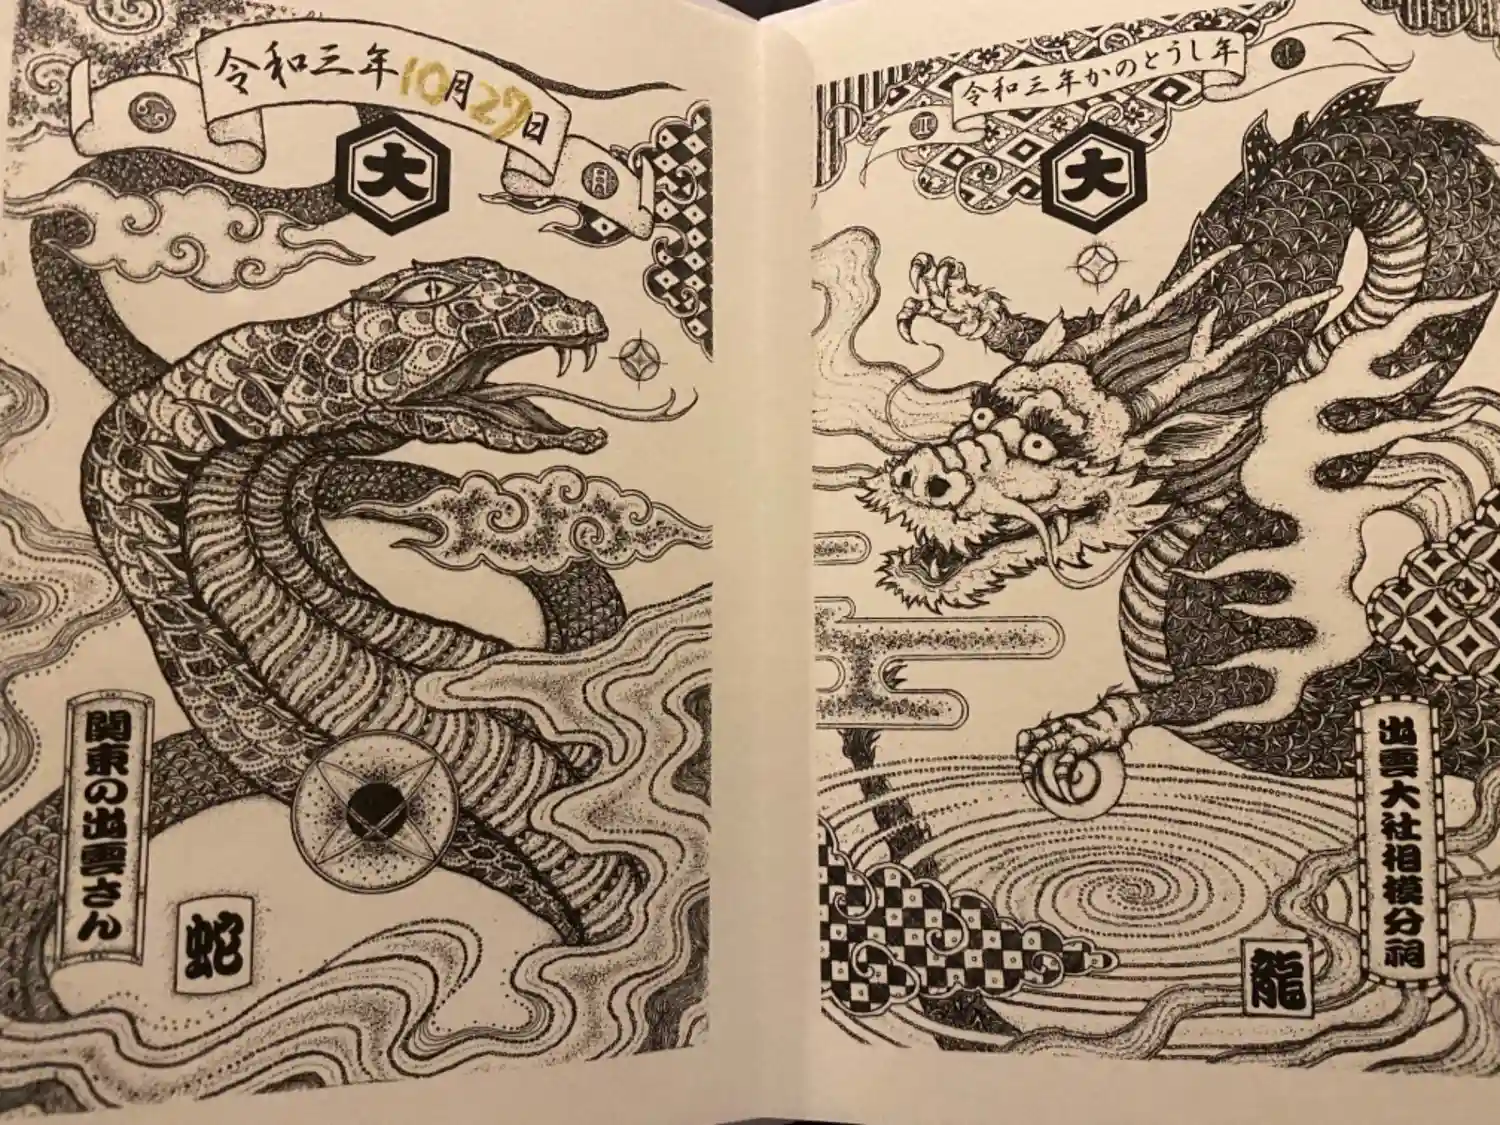 令和三年10月27日
大
関東の出雲さん
蛇
令和三年かのとうし年
大
出雲大社相模分祠
龍